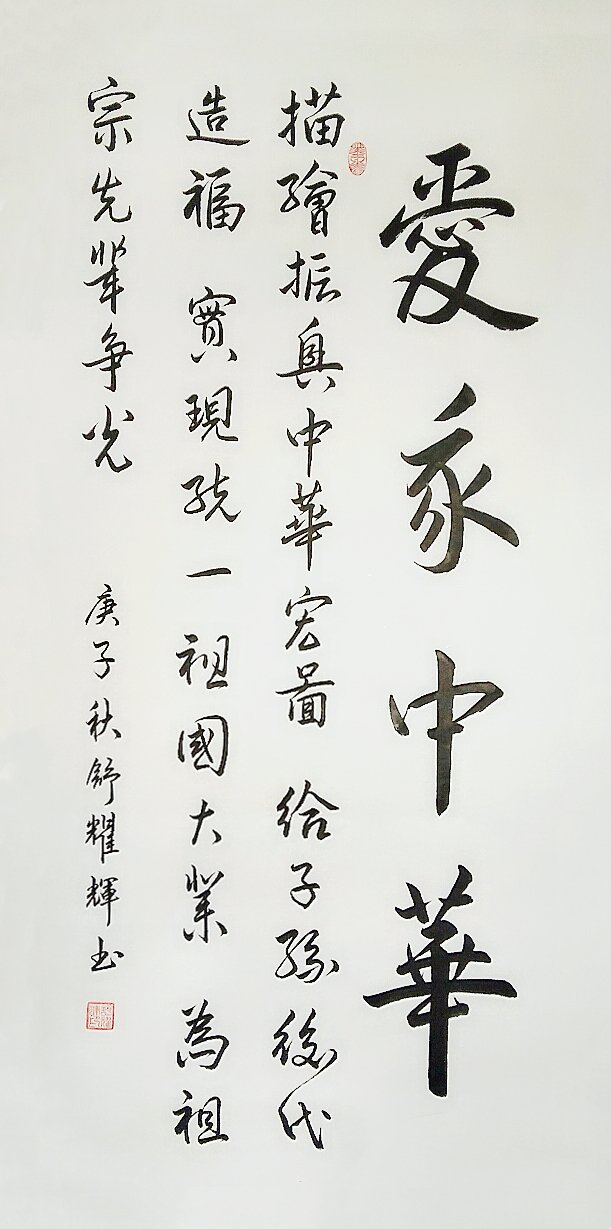 愛我中華
描繪振興中華宏圖 給子孫後代
造福 實現統一祖國大業 為祖
宗先輩争光
庚子秋舒耀輝书